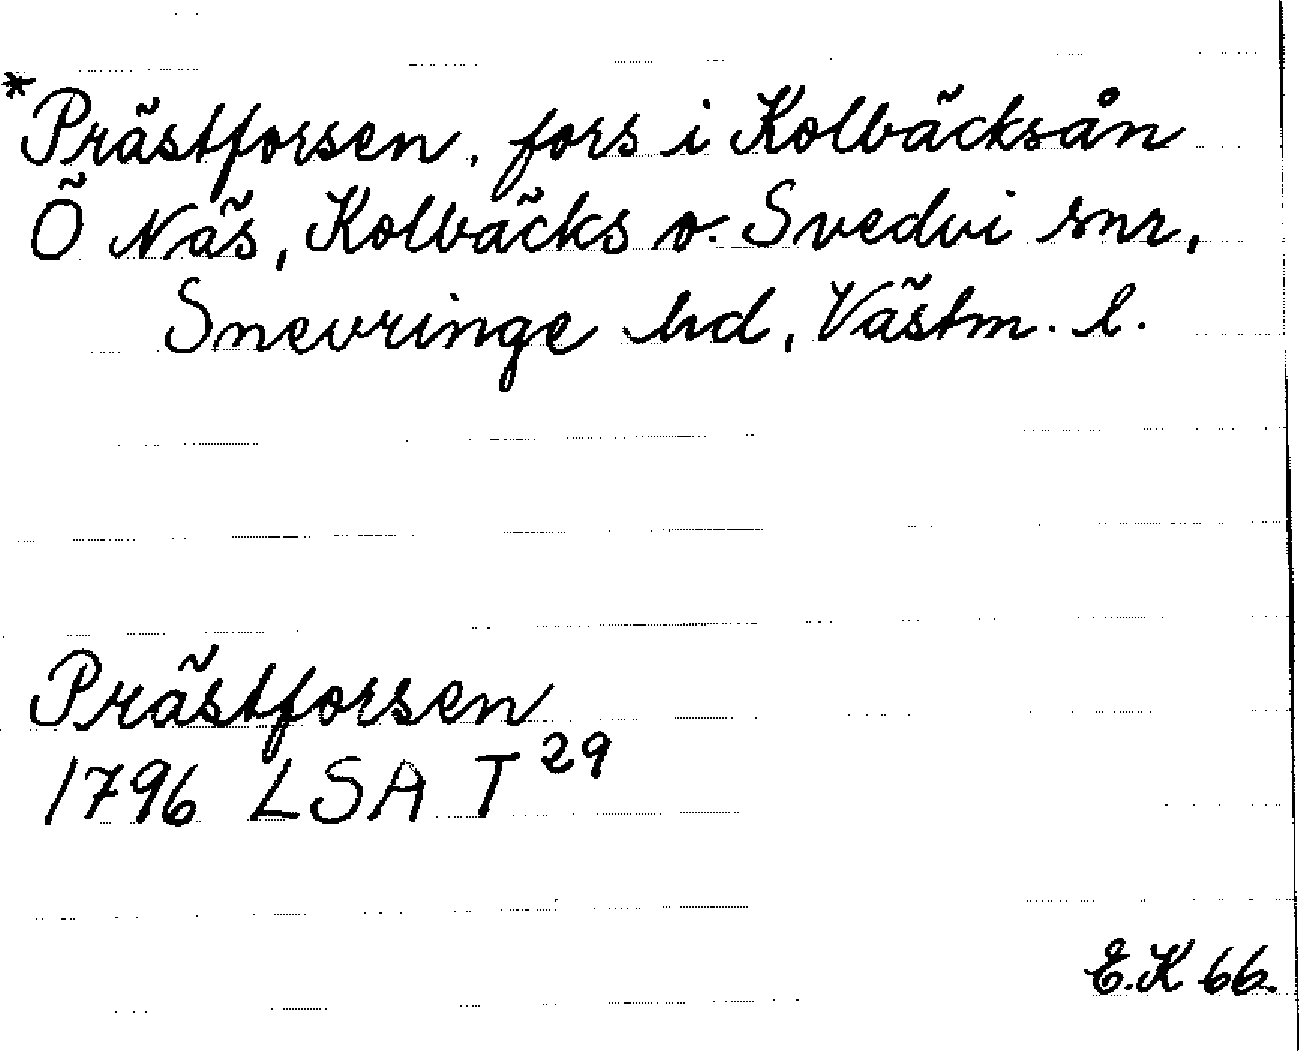 *Prästforsen, fors i Kolbäcksån
Ö Näs, Kolbäcks o. Svedvi snr,
Snevringe hd, Västm. l.
Prästforsen
1796 LSA T 29
E.K 66.